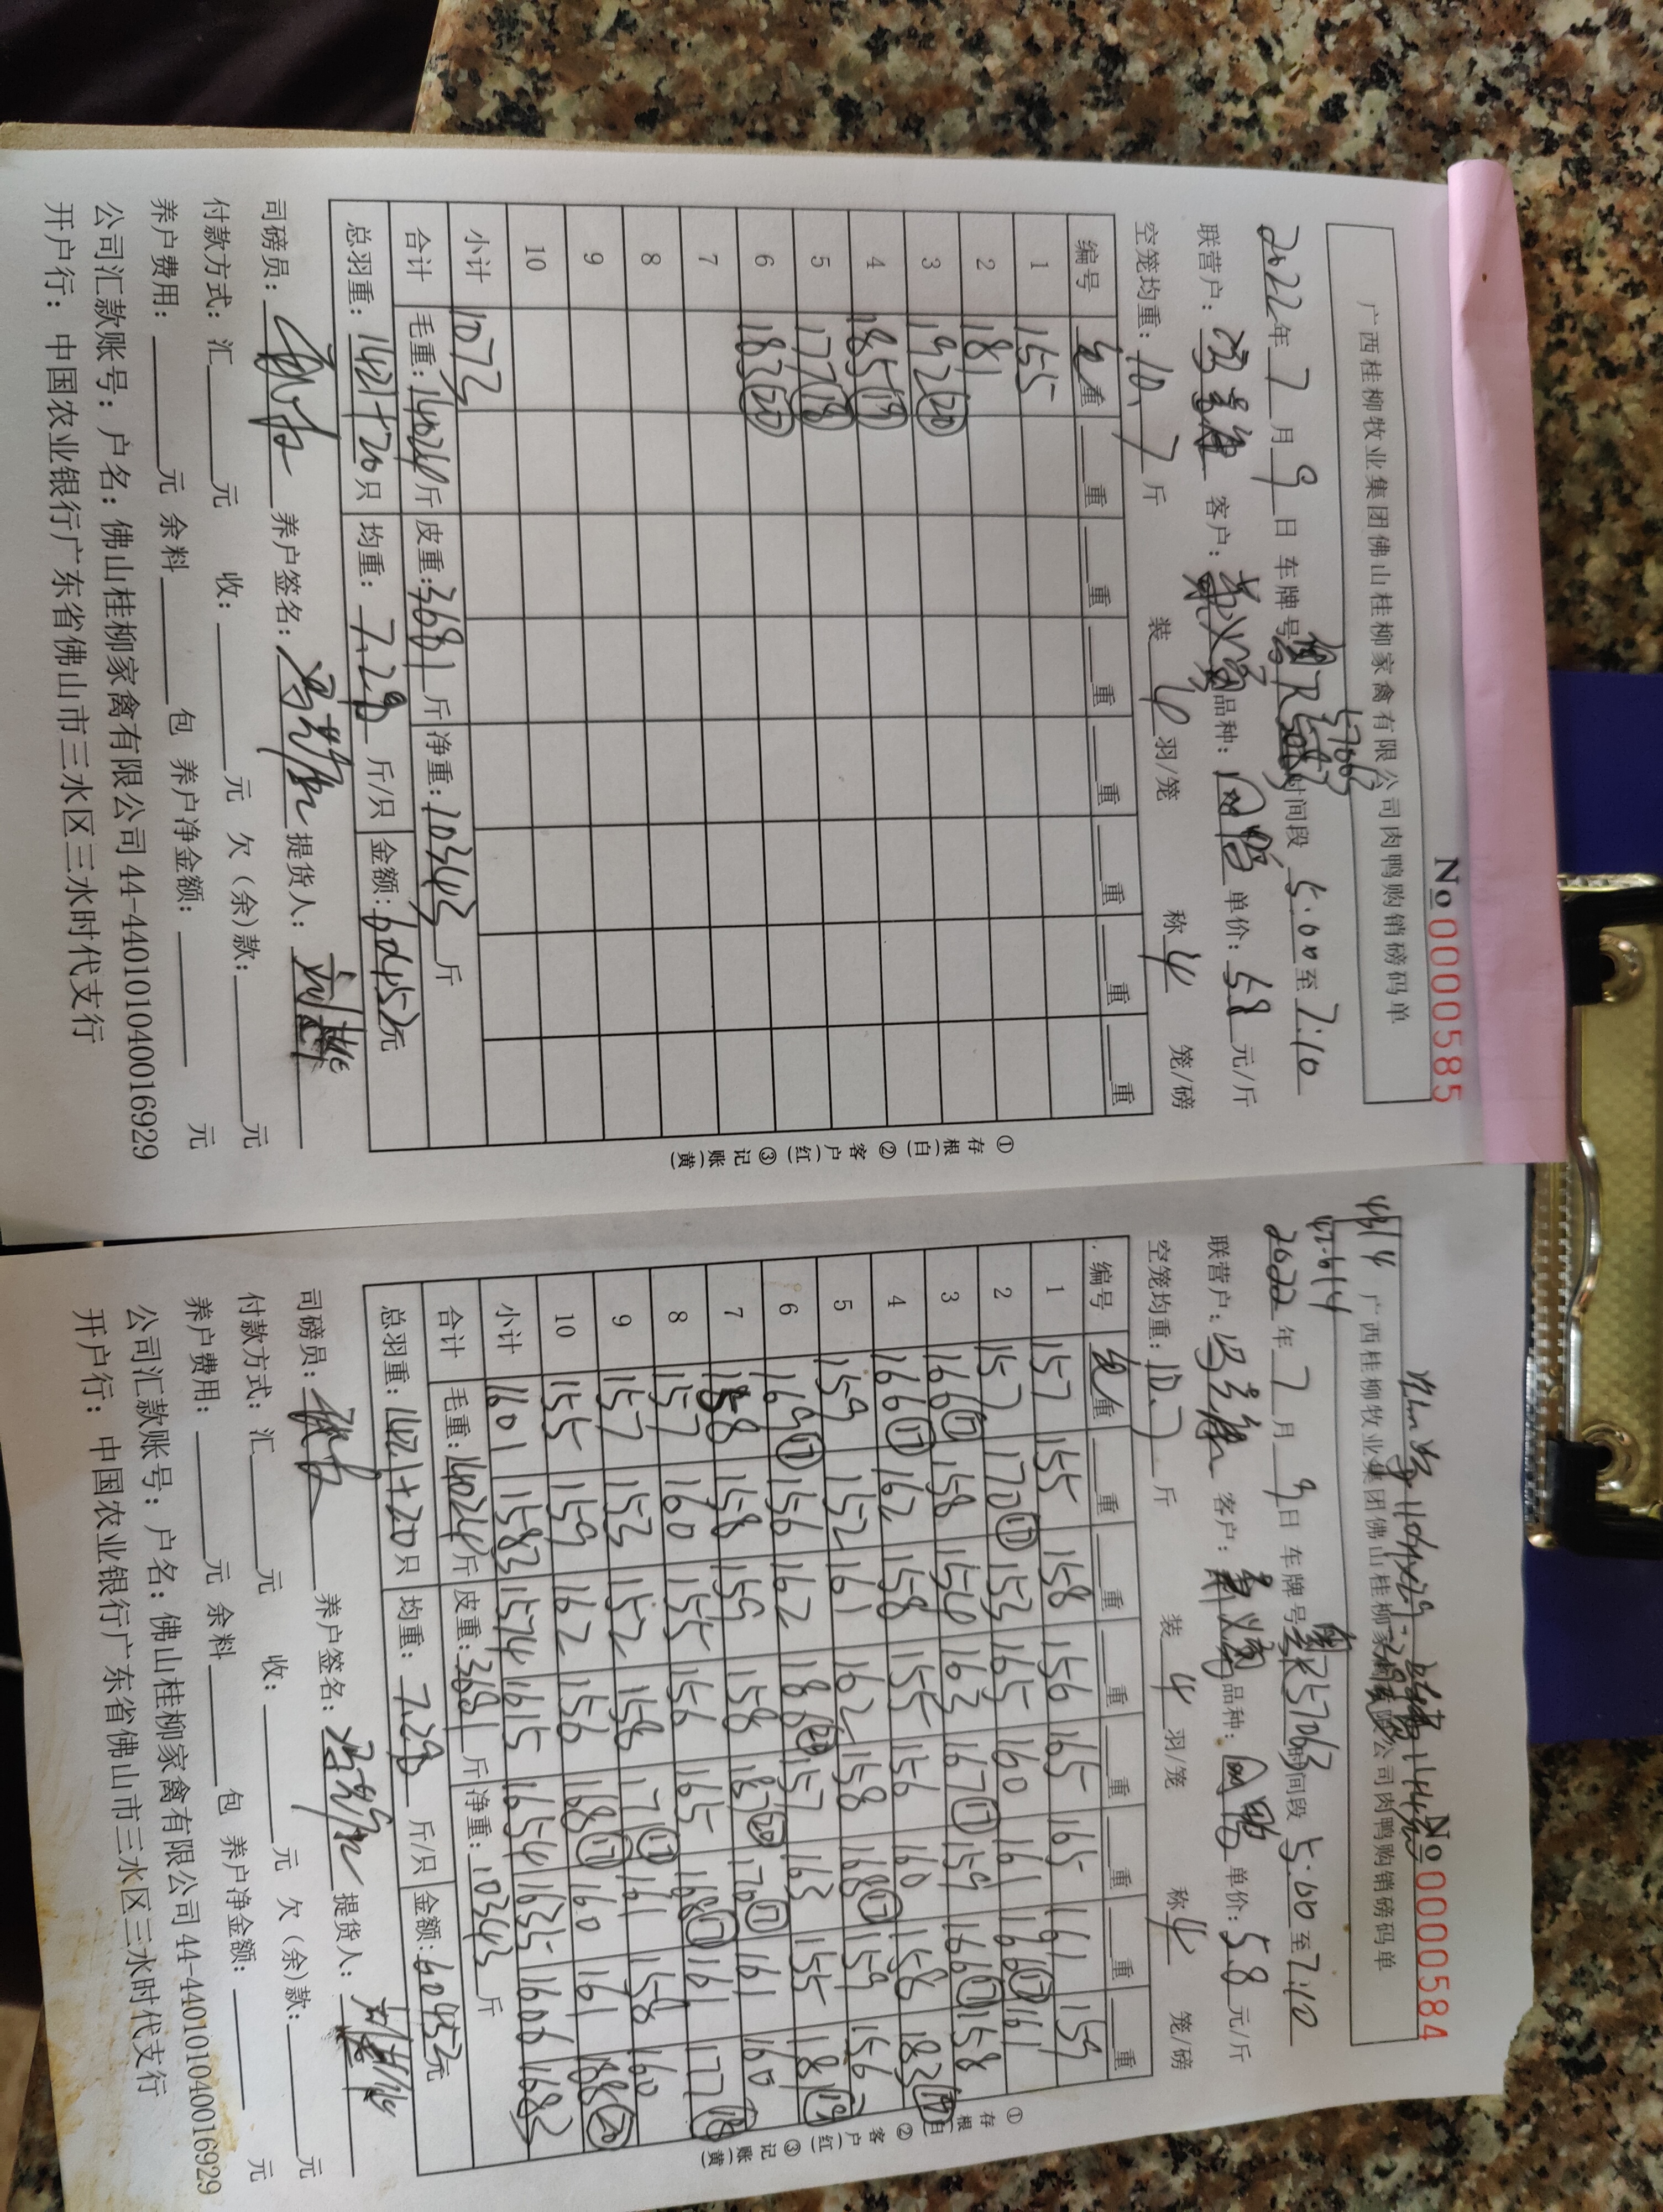 No 0000585
广西桂柳牧业集团佛山桂柳家禽有限公司肉鸭购销磅码单
57063
2022年 7 月 9 日 车牌号 时间段 5:00 至 7:10
联营户: 客户: 品种: 单价: 5.8 元/斤
空笼均重: 10.7 斤 装 4 羽/笼 称 4 笼/磅
编号 毛重 重 重 重 重 重 重 重
1 155
2 181
3 192 ⑳
4 185 ⑲
5 177 ⑱
6 183 ⑳
7
8
9
10
小计 1072
合计 毛重: 14024 斤 皮重: 3681 斤 净重: 10343 斤
总羽重: 1421+20 只 均重: 7.28 斤/只 金额: 60452 元
司磅员: 养户签名: 提货人:
付款方式: 汇 元 收: 元 欠(余)款: 元
养户费用: 元 余料 包 养户净金额: 元
公司汇款账号: 户名: 佛山桂柳家禽有限公司 44-440101040016929
开户行: 中国农业银行广东省佛山市三水区三水时代支行
①存根(白) ②客户(红) ③记账(黄)
No 0000584
4314
42-614
广西桂柳牧业集团佛山桂柳家禽有限公司肉鸭购销磅码单
2022 年 7 月 9 日 车牌号 粤R57063 时间段 5:00 至 7:10
联营户: 客户: 品种: 单价: 5.8 元/斤
空笼均重: 10.7 斤 装 4 羽/笼 称 4 笼/磅
编号 毛重 重 重 重 重 重 重 重
1 157 155 158 156 165 165 161 159
2 157 170 ⑰ 153 165 160 161 166 ⑰ 161
3 166 ⑰ 158 156 163 167 ⑰ 159 166 ⑰ 158
4 166 ⑰ 162 158 155 156 160 158 183 ⑲
5 159 152 161 162 158 168 ⑰ 159 156
6 169 ⑰ 156 162 188 ⑳ 157 163 155 181 ⑲
7 158 158 159 158 187 ⑳ 170 ⑰ 161 160
8 157 160 155 156 165 168 ⑰ 161 177 ⑱
9 157 153 152 158 171 ⑰ 161 158 160
10 155 159 162 156 168 ⑰ 160 161 188 ⑳
小计 1601 1583 1574 1615 1654 1635 1606 1682
合计 毛重: 14024 斤 皮重: 3681 斤 净重: 10343 斤
总羽重: 1421+20 只 均重: 7.28 斤/只 金额: 60452 元
司磅员: 养户签名: 提货人:
付款方式: 汇 元 收: 元 欠(余)款: 元
养户费用: 元 余料 包 养户净金额: 元
公司汇款账号: 户名: 佛山桂柳家禽有限公司 44-440101040016929
开户行: 中国农业银行广东省佛山市三水区三水时代支行
①存根(白) ②客户(红) ③记账(黄)